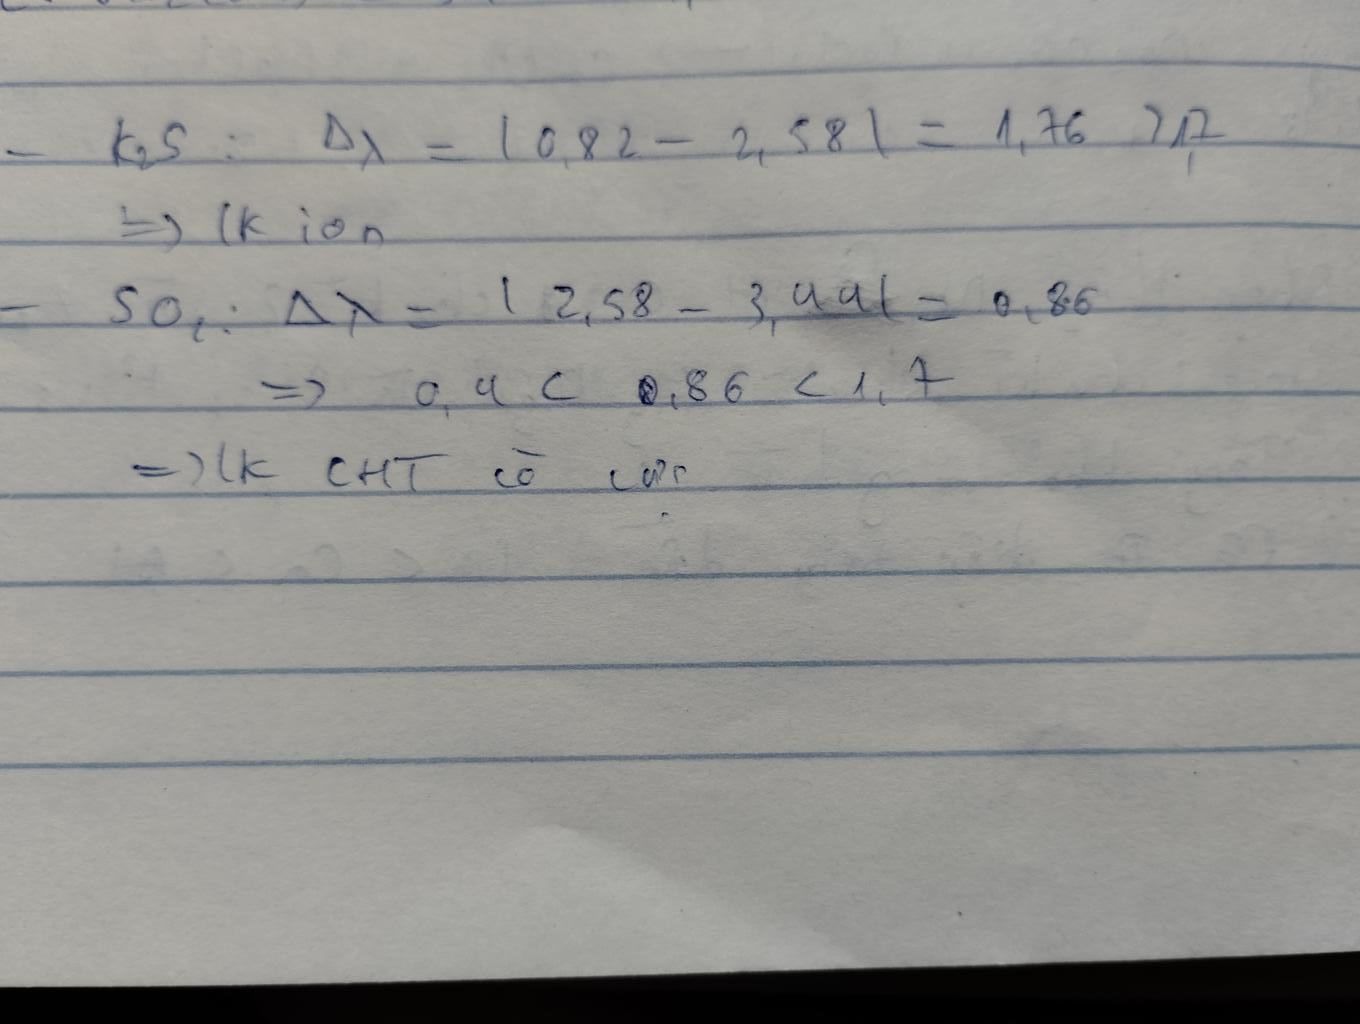 - K₂S : Δλ = |0,82 - 2,58| = 1,76 > 1,7
=> lk ion
- SO₂ : Δλ = | 2,58 - 3,44| = 0,86
=> 0,4 < 0,86 < 1,7
=> lk CHT có cực